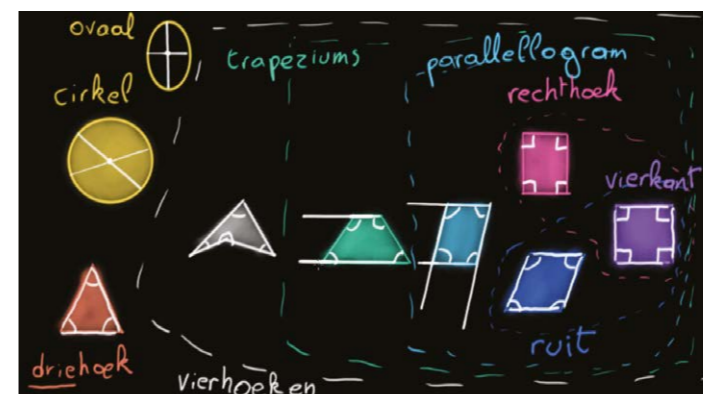 ovaal
trapeziums
parallellogram
cirkel
rechthoek
vierkant
ruit
driehoek
vierhoeken